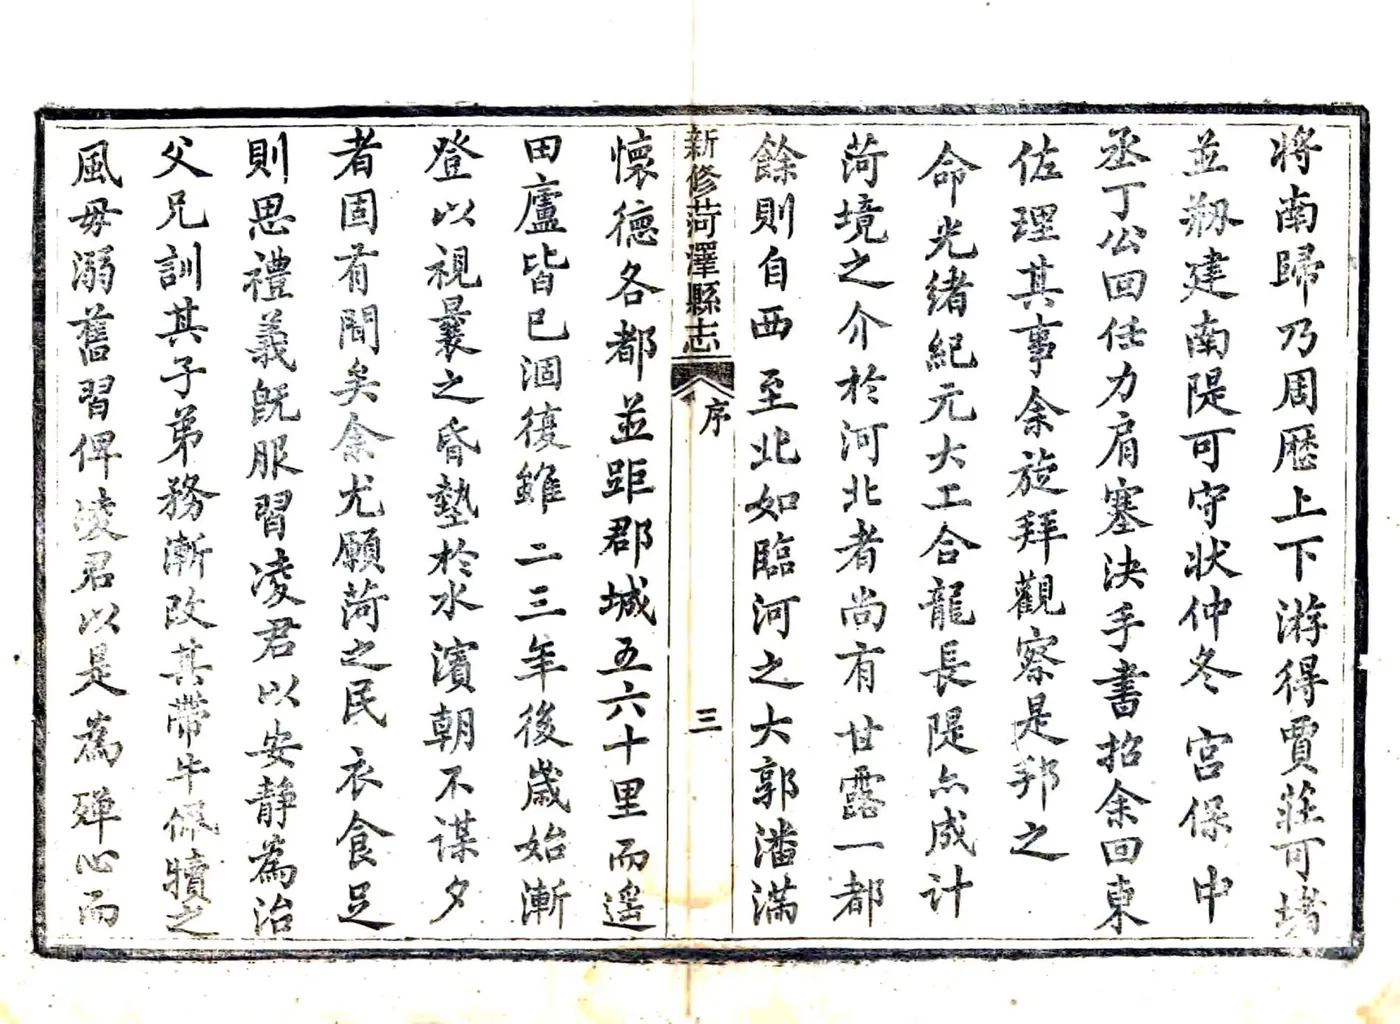 将南歸乃周歷上下游得賈莊可堵
並剏建南隄可守狀仲冬 宮保中
丞丁公回任力肩塞決手書招余回東
佐理其事余旋拜觀察是邦之
命光緒紀元大工合龍長隄亦成計
菏境之介於河北者尚有甘露一都
餘則自西至北如臨河之大郭潘滿
新修菏澤縣志
序
三
懷德各都並距郡城五六十里而遙
田廬皆已涸復雖二三年後歲始漸
登以視曩之昏墊於水濱朝不謀夕
者固有間矣余尤願菏之民衣食足
則思禮義既服習凌君以安靜為治
父兄訓其子弟務漸改其帶牛佩犢之
風毋溺舊習俾凌君以是為殫心而